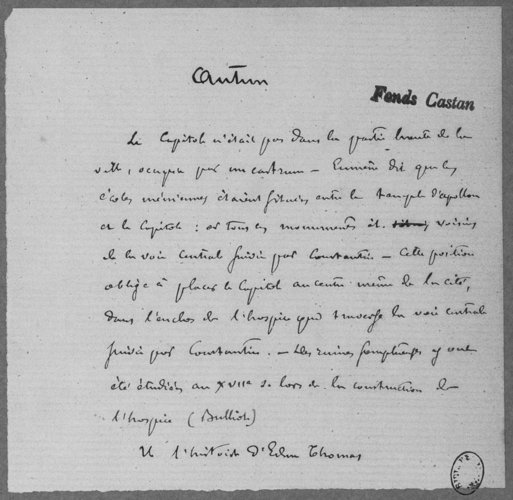 Autun
Fonds Castan
Le Capitole n'était pas dans la partie haute de la
ville, occupée par un castrum — Eumène dit que les
écoles méniennes étaient situées entre le temple d'Apollon
et le Capitole : or tous les monuments ét. voisins
de la voie centrale suivie par Constantin — Cette position
oblige à placer le Capitole au centre même de la cité,
dans l'enclos de l'hospice que traverse la voie centrale
suivie par Constantin. — Des ruines somptueuses y ont
été étudiées au XVIIe s. lors de la construction de
l'hospice (Bulliot)
V. l'histoire d'Edme Thomas